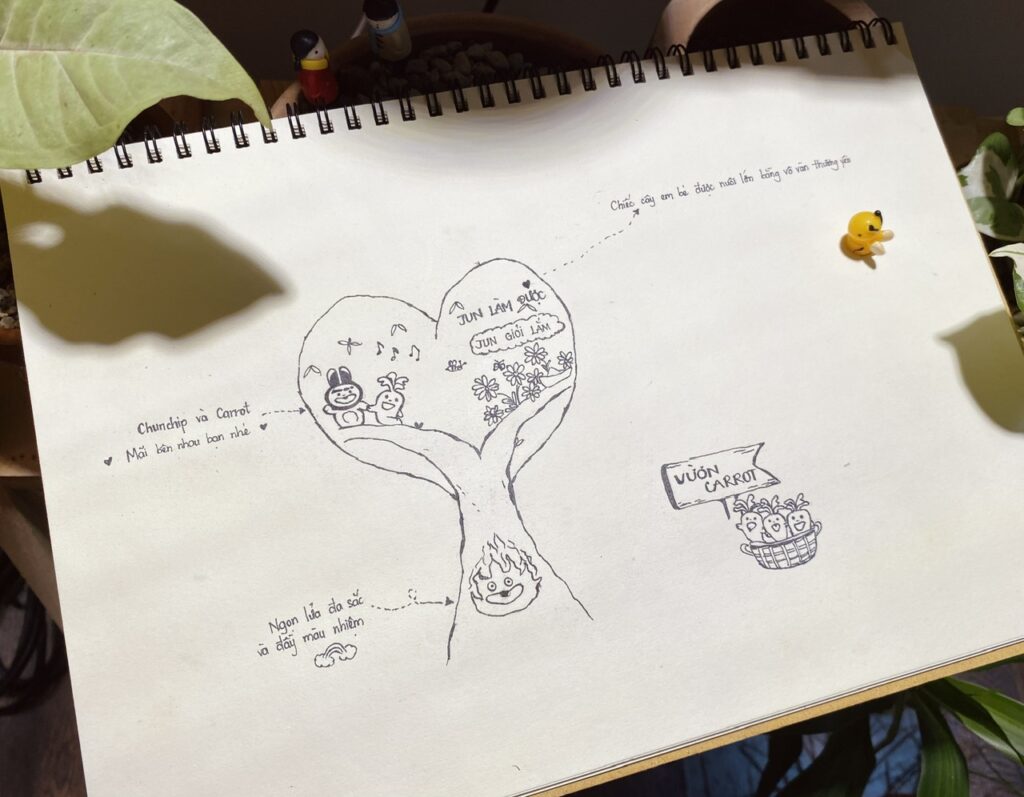 Chiếc cây em bé được nuôi lớn bằng vô vàn thương yêu
JUN LÀM ĐƯỢC
JUN GIỎI LẮM
Chunchip và Carrot
Mãi bên nhau bạn nhé
VƯỜN
CARROT
Ngọn lửa đa sắc
và đầy màu nhiệm